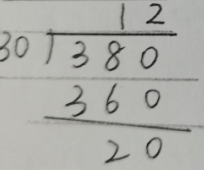 12
30)380
360
20